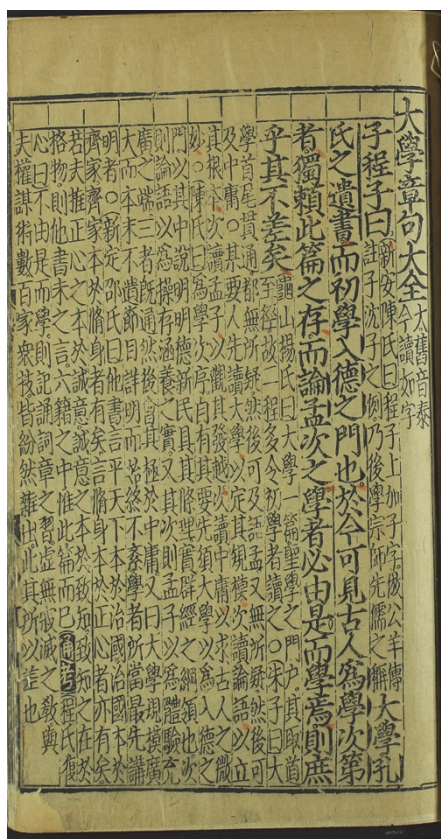 大學章句大全大舊音泰
今讀如字
子程子曰新安陳氏曰程子上加子字倣公羊傳
註子沈子之例乃後學宗師先儒之稱大學孔
氏之遺書而初學入德之門也於今可見古人為學次第
者獨賴此篇之存而論孟次之學者必由是而學焉則庶
乎其不差矣龜山楊氏曰大學一篇聖學之門户其取道
至徑故二程多令初學者讀之○朱子曰大
學首尾貫通都無所疑然後可及語孟又無所疑然後可
及中庸○某要人先讀大學以定其規模次讀論語以立
其根本次讀孟子以觀其發越次讀中庸以求古人之微
妙○陳氏曰為學次序自有其要先須大學以為入德之
門以其中說明明德新民具其條理實群經之綱領也次
則論語以為操存涵養之實又其次則孟子以為體驗充
廣之端三者既通然後會其極於中庸又曰大學規模廣
大而本末不遺節目詳明而始終不紊學者所當最先講
明者○新定邵氏曰他書言平天下本於治國治國本於
齊家齊家本於脩身者有矣言脩身本於正心者亦有矣
若夫推正心之本於誠意誠意之本於致知致知之在於
格物則他書未之言六籍之中惟此篇而已通考程氏復
心曰不由是而學則記誦詞章之習虛無寂滅之教與
夫權謀術數百家衆技皆紛然雜出此其所以差也